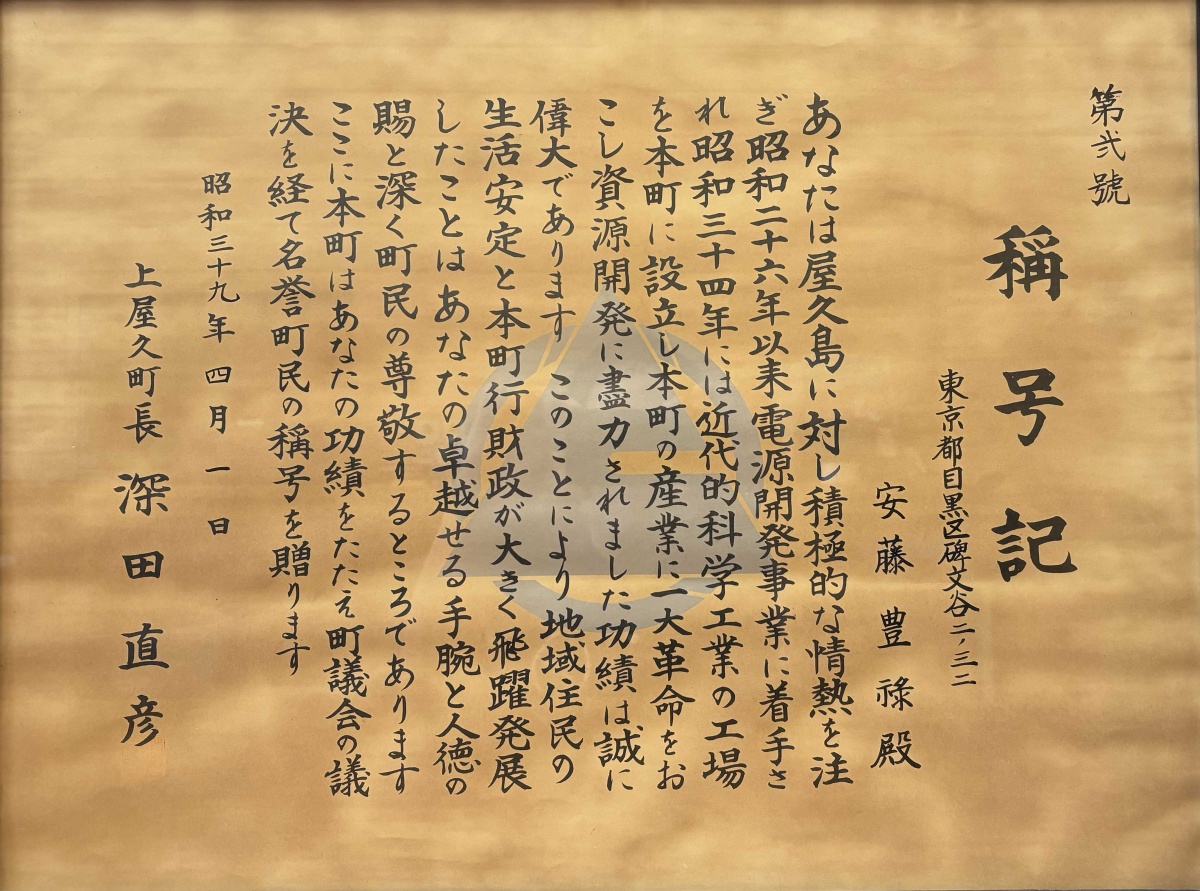 第弐號
稱号記
東京都目黒区碑文谷二ノ三二
安藤豊祿殿
あなたは屋久島に対し積極的な情熱を注
ぎ昭和二十六年以来電源開発事業に着手さ
れ昭和三十四年には近代的科学工業の工場
を本町に設立し本町の産業に一大革命をお
こし資源開発に盡力されました功績は誠に
偉大であります このことにより地域住民の
生活安定と本町行財政が大きく飛躍発展
したことはあなたの卓越せる手腕と人徳の
賜と深く町民の尊敬するところであります
ここに本町はあなたの功績をたたえ町議会の議
決を経て名誉町民の稱号を贈ります
昭和三十九年四月一日
上屋久町長 深田直彦